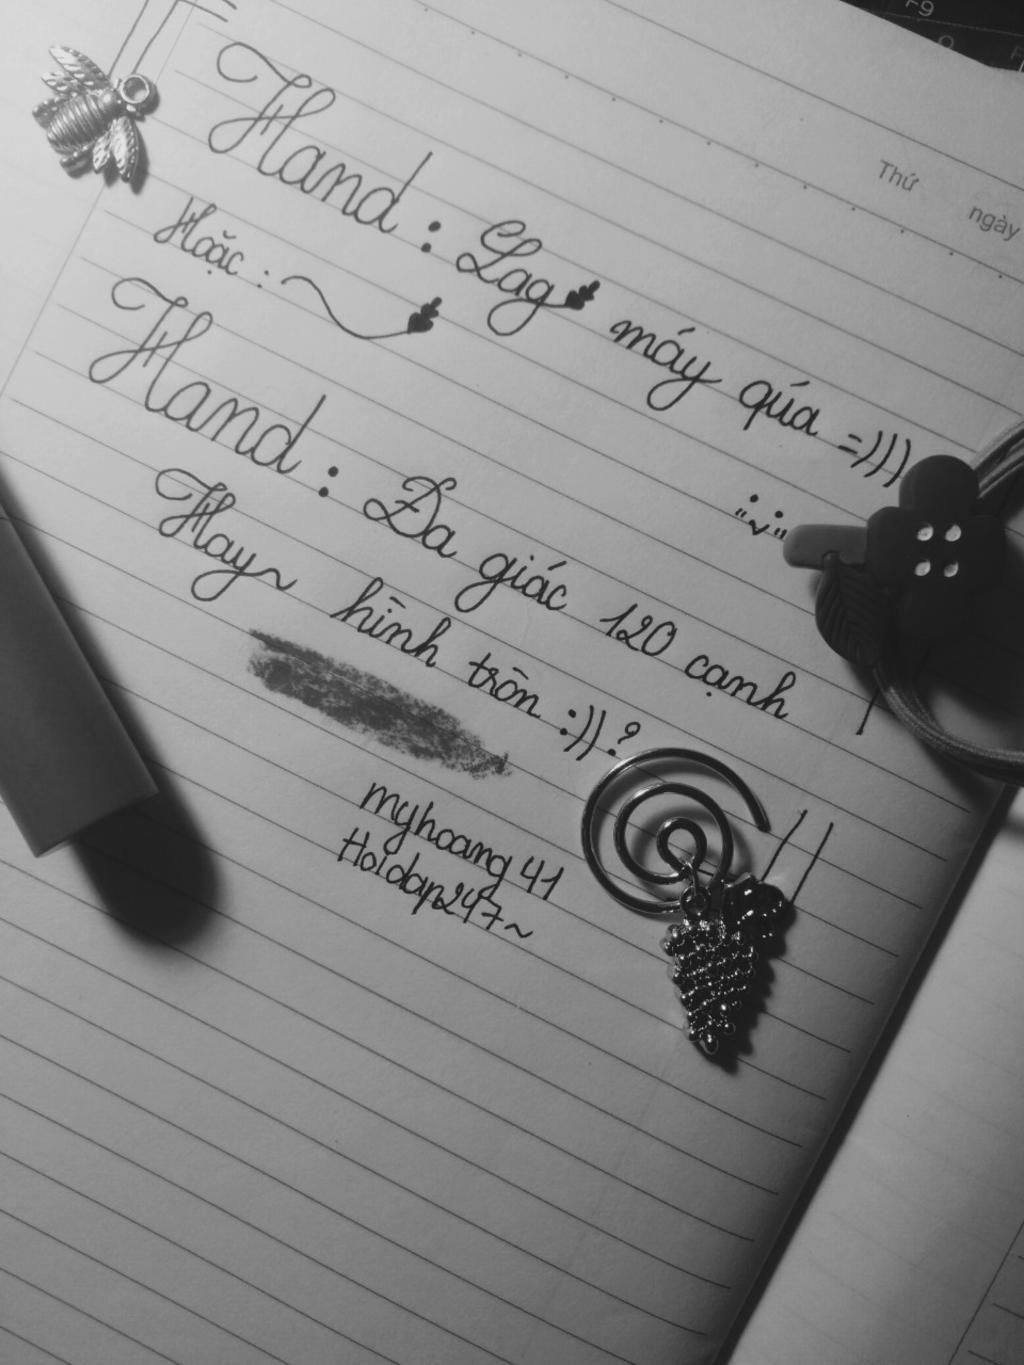 F9
Thứ
ngày
Hand : Lag máy qúa =)))
Hoặc :
Hand : Đa giác 120 cạnh
Hay~ hình tròn :)) ?
myhoang41
Hoidap247~